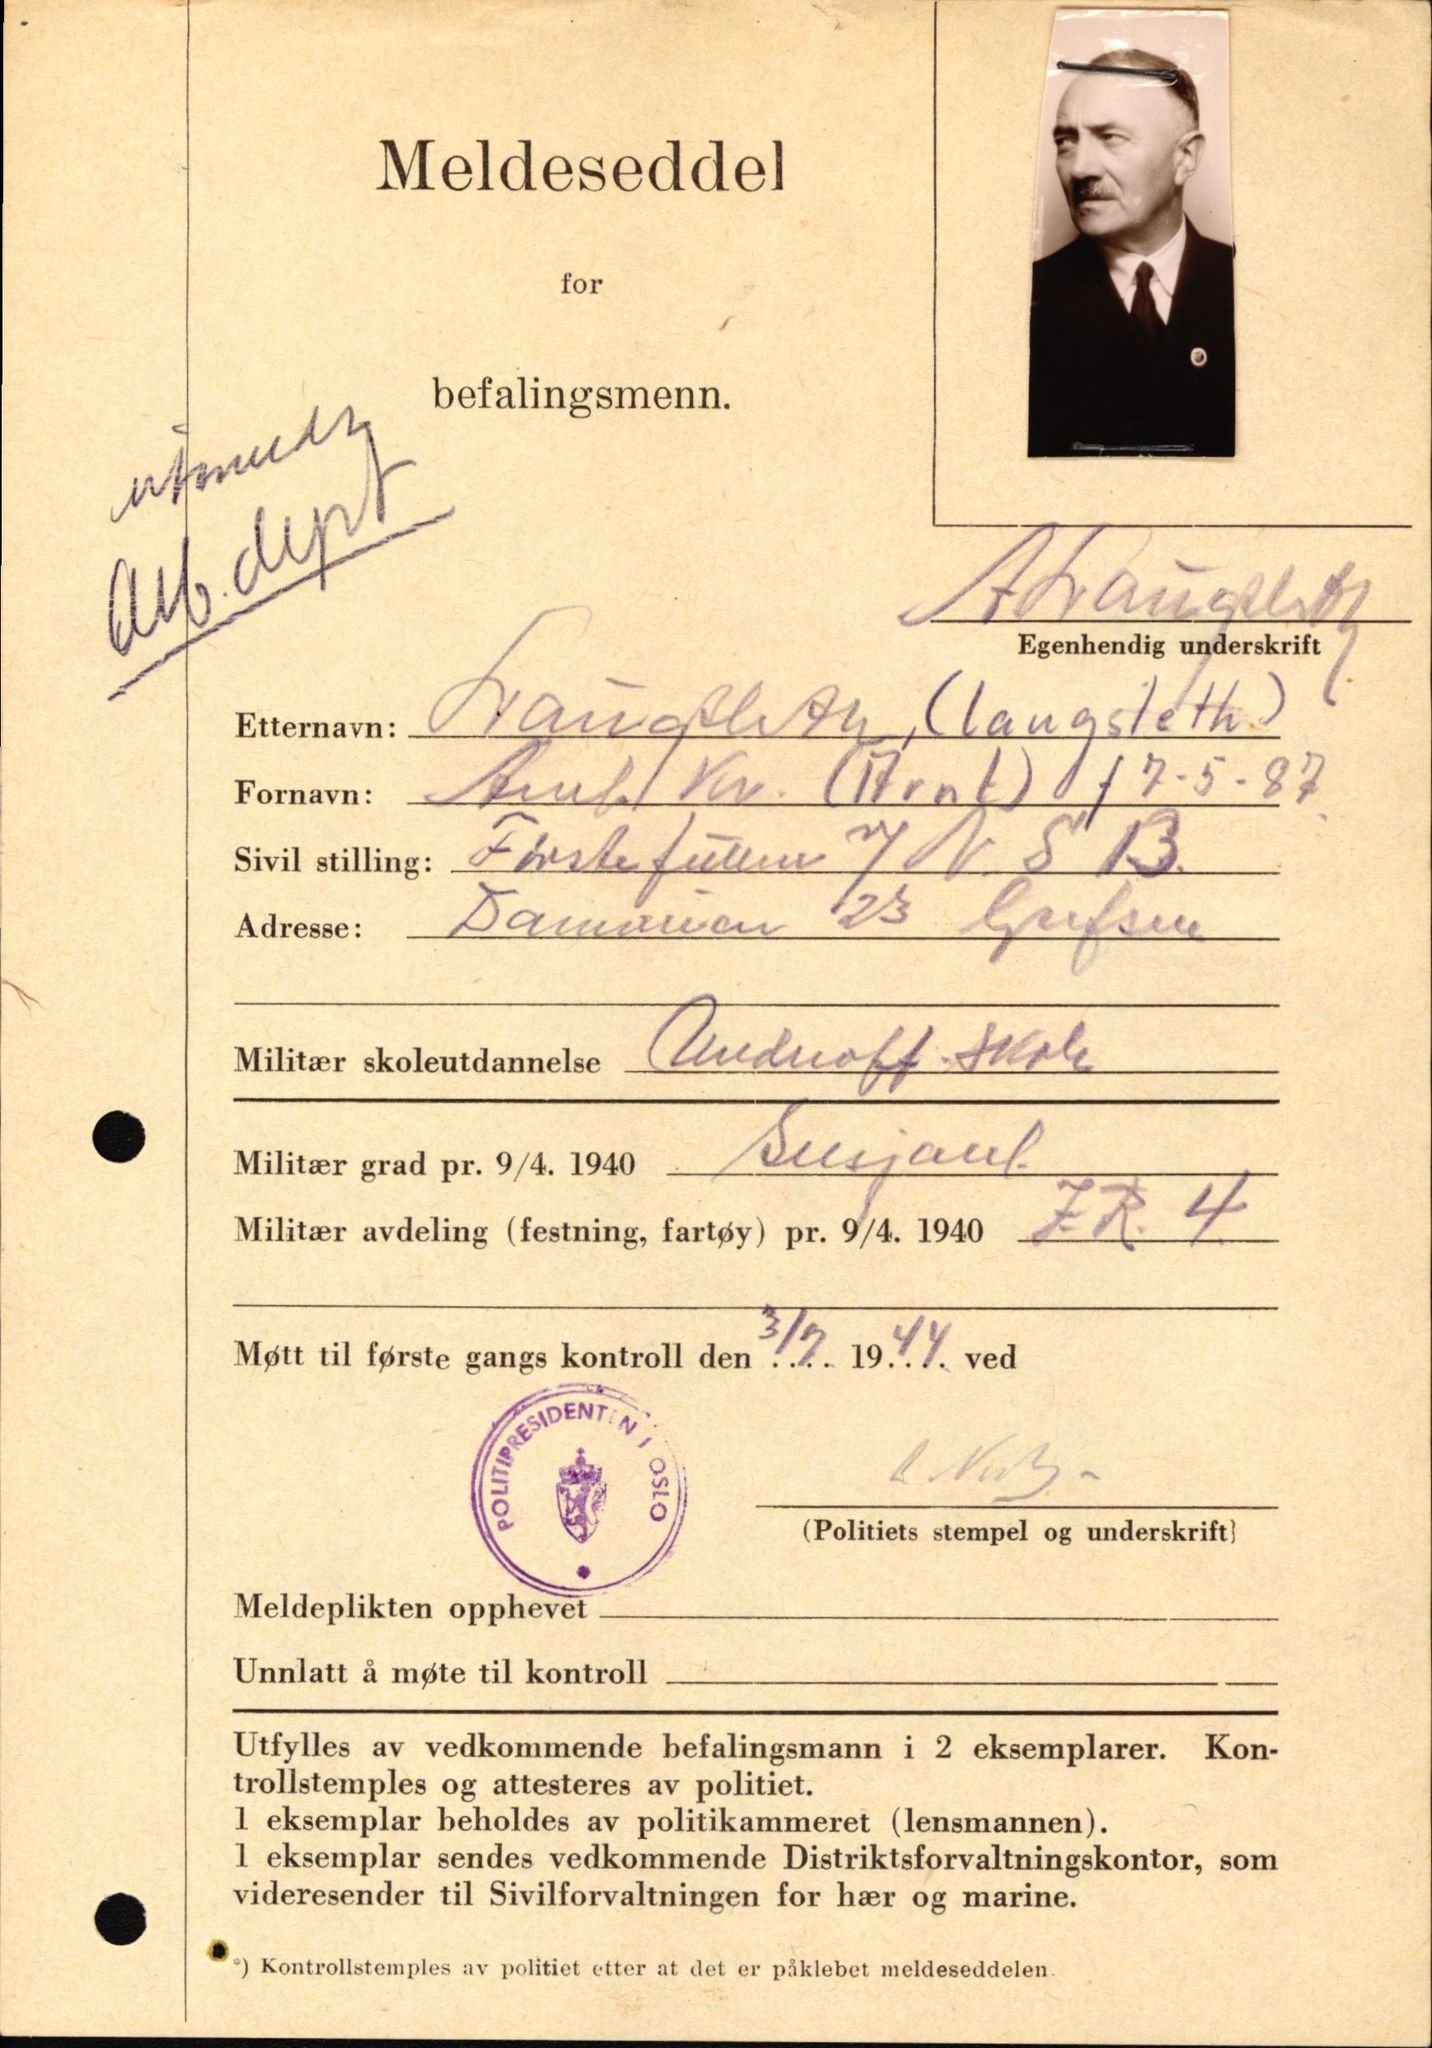 Meldeseddel
for
befalingsmenn.
Arb. dept
Egenhendig underskrift
Etternavn: Laugsleth, (laugsleth)
Fornavn: Arnt Kv. (Arnt) f 7-5-87
Sivil stilling: Førstefullm v/ N. S B.
Adresse: Damveien 23 Grefsen
Militær skoleutdannelse Underoff. skole
Militær grad pr. 9/4. 1940 Sersjant.
Militær avdeling (festning, fartøy) pr. 9/4. 1940 I.R. 4
Møtt til første gangs kontroll den 3/7 1944. ved
POLITIPRESIDENTEN I OSLO
(Politiets stempel og underskrift)
Meldeplikten opphevet
Unnlatt å møte til kontroll
Utfylles av vedkommende befalingsmann i 2 eksemplarer. Kon-
trollstemples og attesteres av politiet.
1 eksemplar beholdes av politikammeret (lensmannen).
1 eksemplar sendes vedkommende Distriktsforvaltningskontor, som
videresender til Sivilforvaltningen for hær og marine.
*) Kontrollstemples av politiet etter at det er påklebet meldeseddelen.